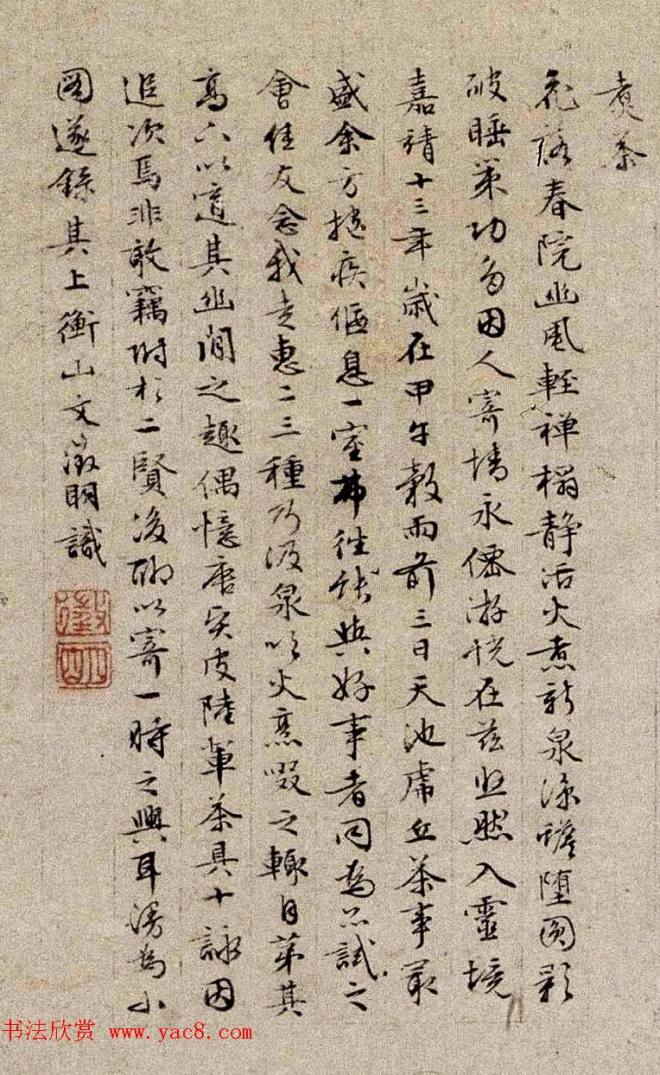 煮茶
花落春院幽風輕禅榻静活火煮新泉涼蟾堕圓影
破睡策功多因人寄情永僊游恍在茲悠然入靈境
嘉靖十三年歲在甲午穀雨前三日天池虎丘茶事最
盛余方抱疾偃息一室弗往能與好事者同為品試之
會佳友念我走惠二三種乃汲泉以火烹啜之輒自第其
高下以適其幽閒之趣偶憶唐賢皮陸輩茶具十詠因
追次焉非敢竊附於二賢後聊以寄一時之興耳漫為小
圖遂錄其上衡山文徵明識
徵明
书法欣赏 www.yac8.com